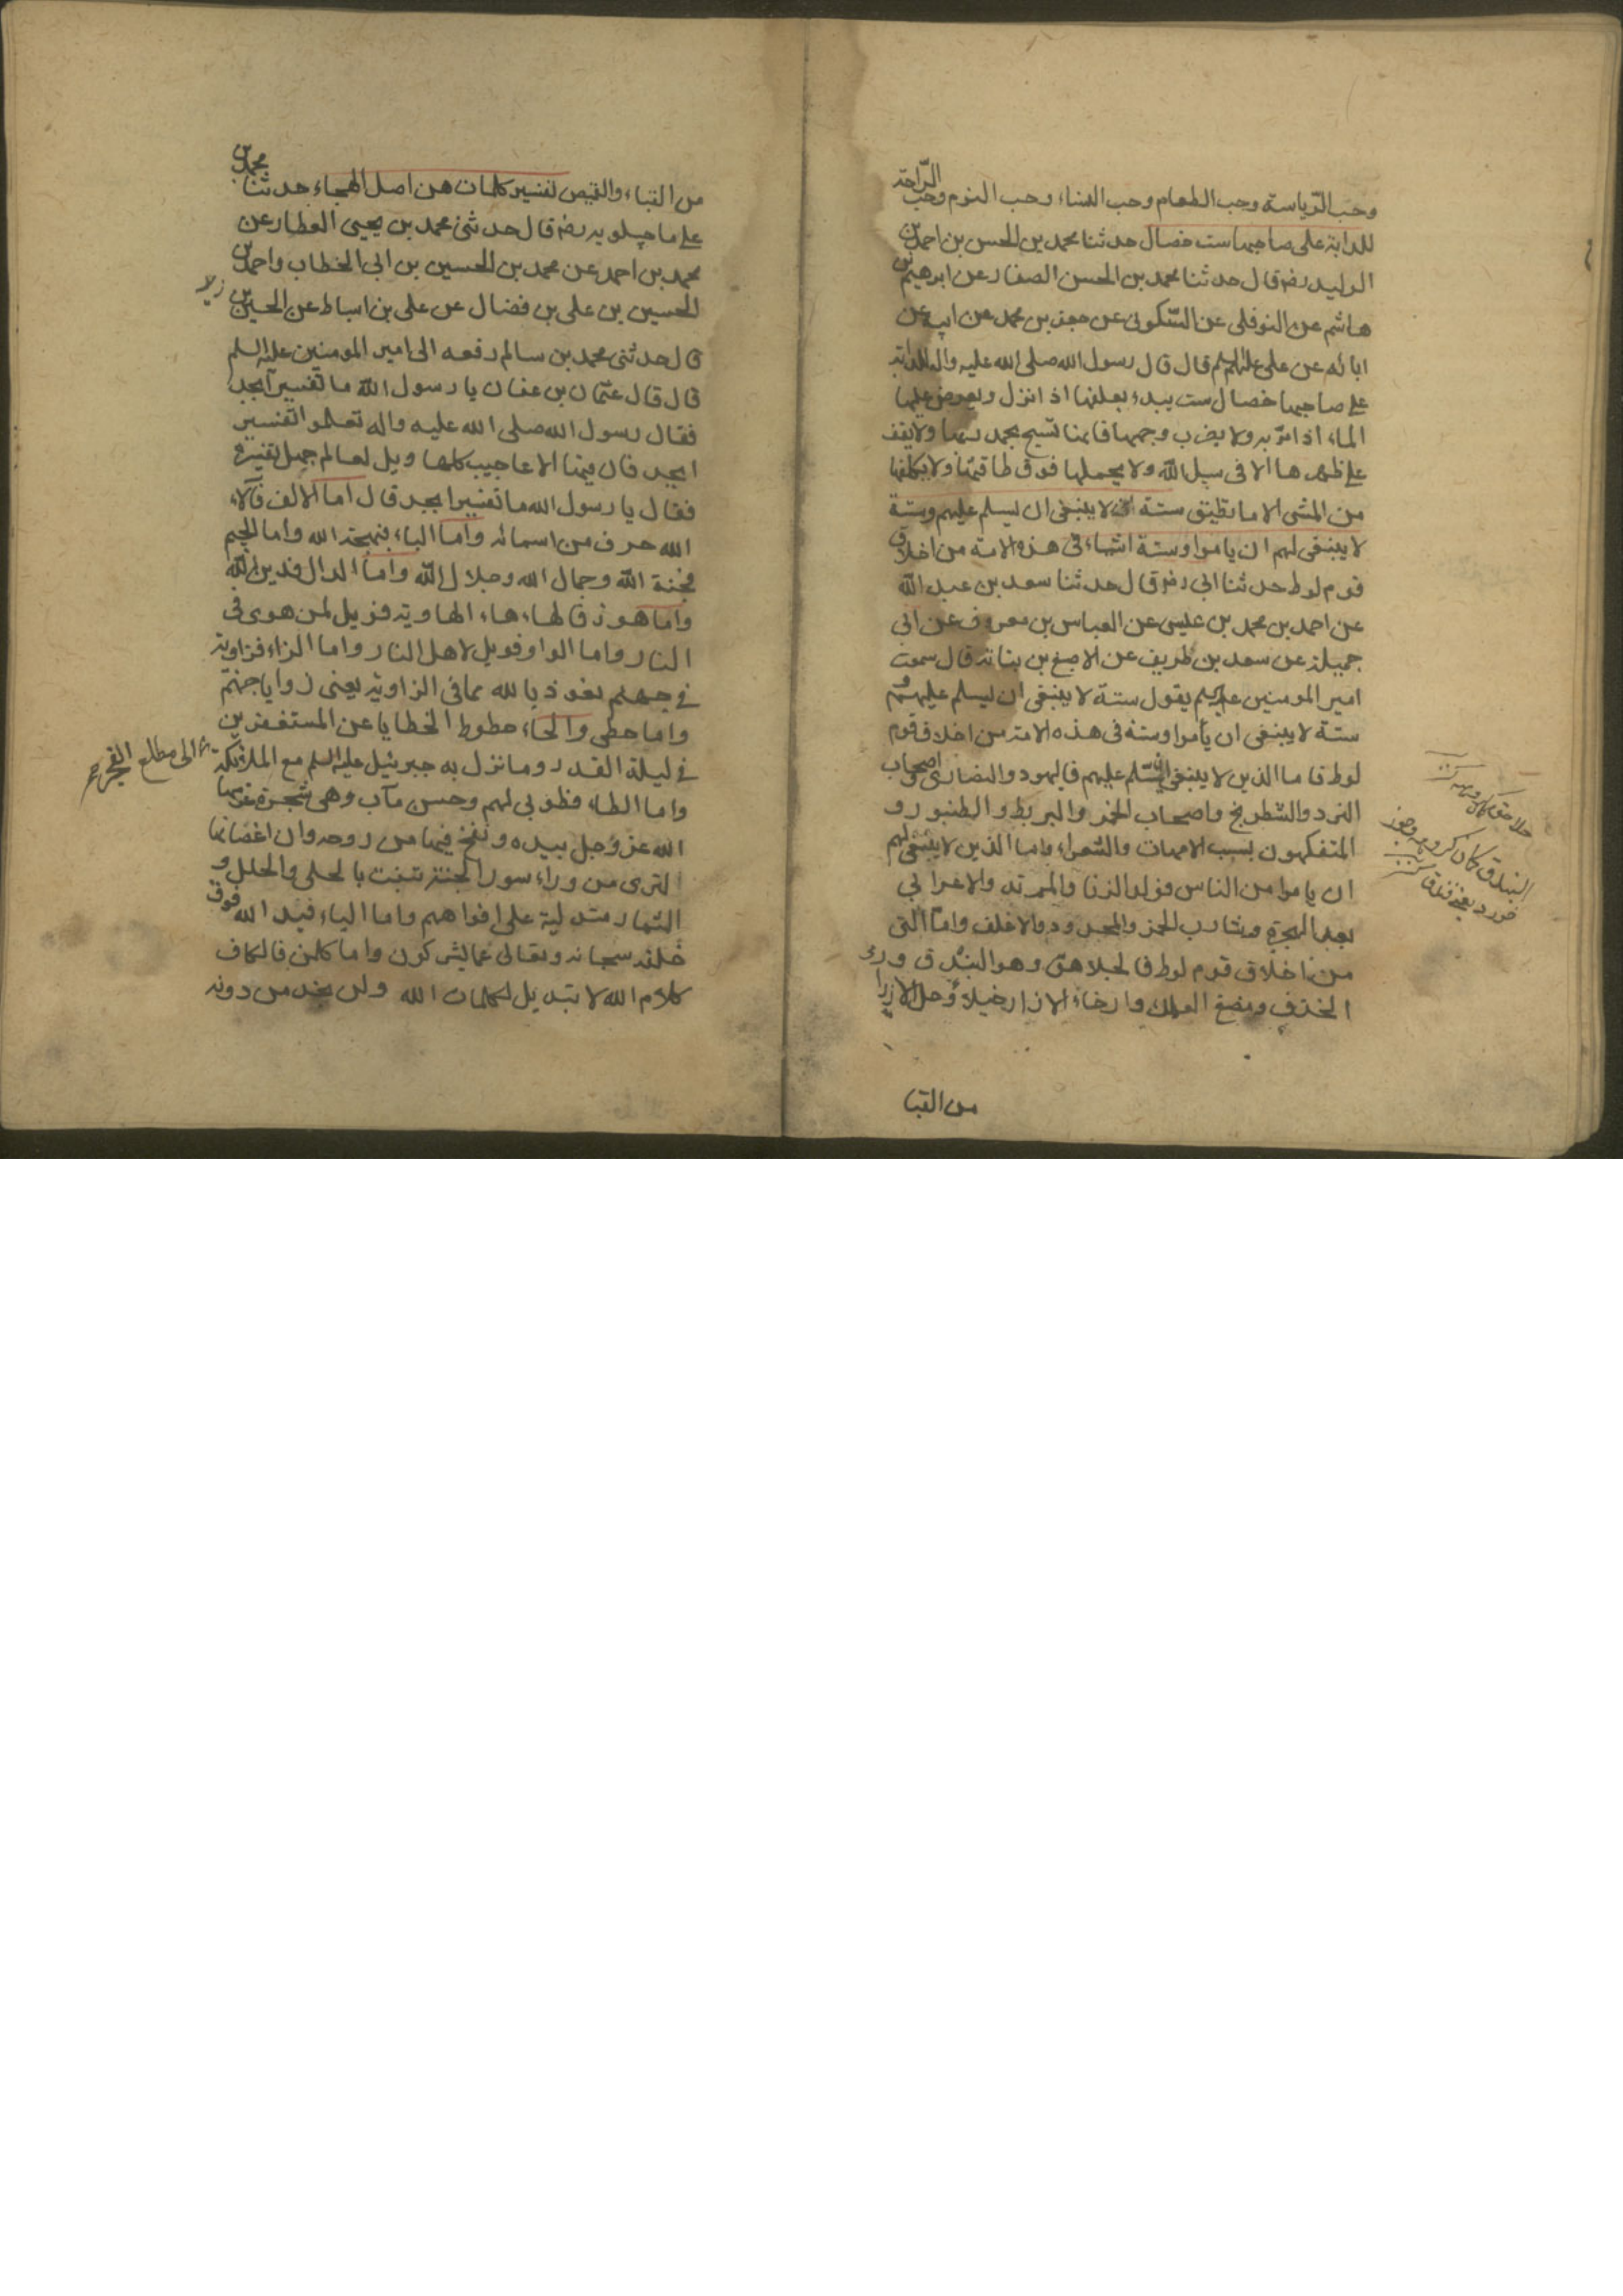 وحب الرّياسة وحب الطعام وحب النساء وحب النوم وحب الرّاحة
للدابة على صاحبها ست خصال حدثنا محمد بن الحسن بن احمد بن
الوليد رضه قال حدثنا محمد بن الحسن الصفار عن ابرهيم بن
هاشم عن النوفلى عن السّكونى عن جعفر بن محمد عن ابيه عن
ابائه عن على عليهم السلم قال قال رسول الله صلى الله عليه واله للدابة
على صاحبها خصال ست يبدء بعلفها اذا نزل ويعرض عليها
الماء اذا مرّ به ولا يضرب وجهها فانها تسبح بحمد ربها ولا يقف
على ظهرها الا فى سبيل اللّه ولا يحملها فوق طاقتها ولا يكلفها
من المشى الا ما تطيق ستة لا ينبغى ان يسلم عليهم وستة
لا ينبغى لهم ان ياموا وستة اشياء فى هذه الامة من اخلاق
قوم لوط حدثنا ابى رضه قال حدثنا سعد بن عبد اللّه
عن احمد بن محمد بن عليسى عن العباس بن معروف عن ابى
جميلة عن سعد بن طريف عن الاصبغ بن بناته قال سمعت
امير المومنين عليه السلم يقول ستة لا ينبغى ان يسلم عليهم و
ستة لا ينبغى ان يأموا وستة فى هذه الامة من اخلاق قوم
لوط فاما الذين لا ينبغى ان يسّلم عليهم فاليهود والنصارى واصحاب
النرد والشطرنج واصحاب الخمر والبربط والطنبور و
المتفكهون بسبب الامهات والشعراء واما الذين لا ينبغى لهم
ان ياموا من الناس فولد الزنا والمرتد والاعرابى
بعد الهجرة وشارب الخمر والمحدود والاغلف واما التى
من اخلاق قوم لوط فالجلاهق وهو البندق ورء
الخذف ومضغ العلك وارخاء الازار خيلاء وحل الازرا
من القبا
البندق كمان كروهه وجوز
من القباء والقميص تفسير كلمات هن اصل الهجاء حدثنا محمد بن
على ماجيلويه رضه قال حدثنى محمد بن يحيى العطار عن
محمد بن احمد عن محمد بن الحسين بن ابى الخطاب واحمد بن
الحسين بن على بن فضال عن على بن اسباط عن الحسين بن
زيد
قال حدثنى محمد بن سالم رفعه الى امير المومنين عليه السلم
قال قال عثمان بن عفان يا رسول اللّه ما تفسير ابجد
فقال رسول الله صلى الله عليه واله تعلموا تفسير
ابجد فان فيها الاعاجيب كلها ويل لعالم جهل تفسيره
فقال يا رسول الله ما تفسير ابجد قال اما الالف فآلاء
الله حرف من اسمائه واما الباء فبهجة الله واما الجيم
فجنة اللّه وجمال الله وجلال اللّه واما الدال فدين اللّه
واما هوز فالهاء هاء الهاوية فويل لمن هوى فى
النار واما الواو فويل لاهل النار واما الزاء فزاوية
فى جهنم نعوذ بالله مما فى الزاوية يعنى زوايا جهنّم
واما حطى والحاء حطوط الخطايا عن المستغفرين
فى ليلة القدر وما نزل به جبرئيل عليه السلم مع الملائكة
الى مطلع الفجر
واما الطاء فطوبى لهم وحسن مآب وهى شجرة غرسها
الله عز وجل بيده ونفخ فيها من روحه وان اغصانها
لترى من وراء سور الجنة تنبت بالحلى والحلل و
الثمار متدلية على افواههم واما الياء فيد الله فوق
خلقه سبحانه وتعالى عما يشركون واما كلمن فالكاف
كلام الله لا تبديل لكلمات الله ولن يجد من دونه